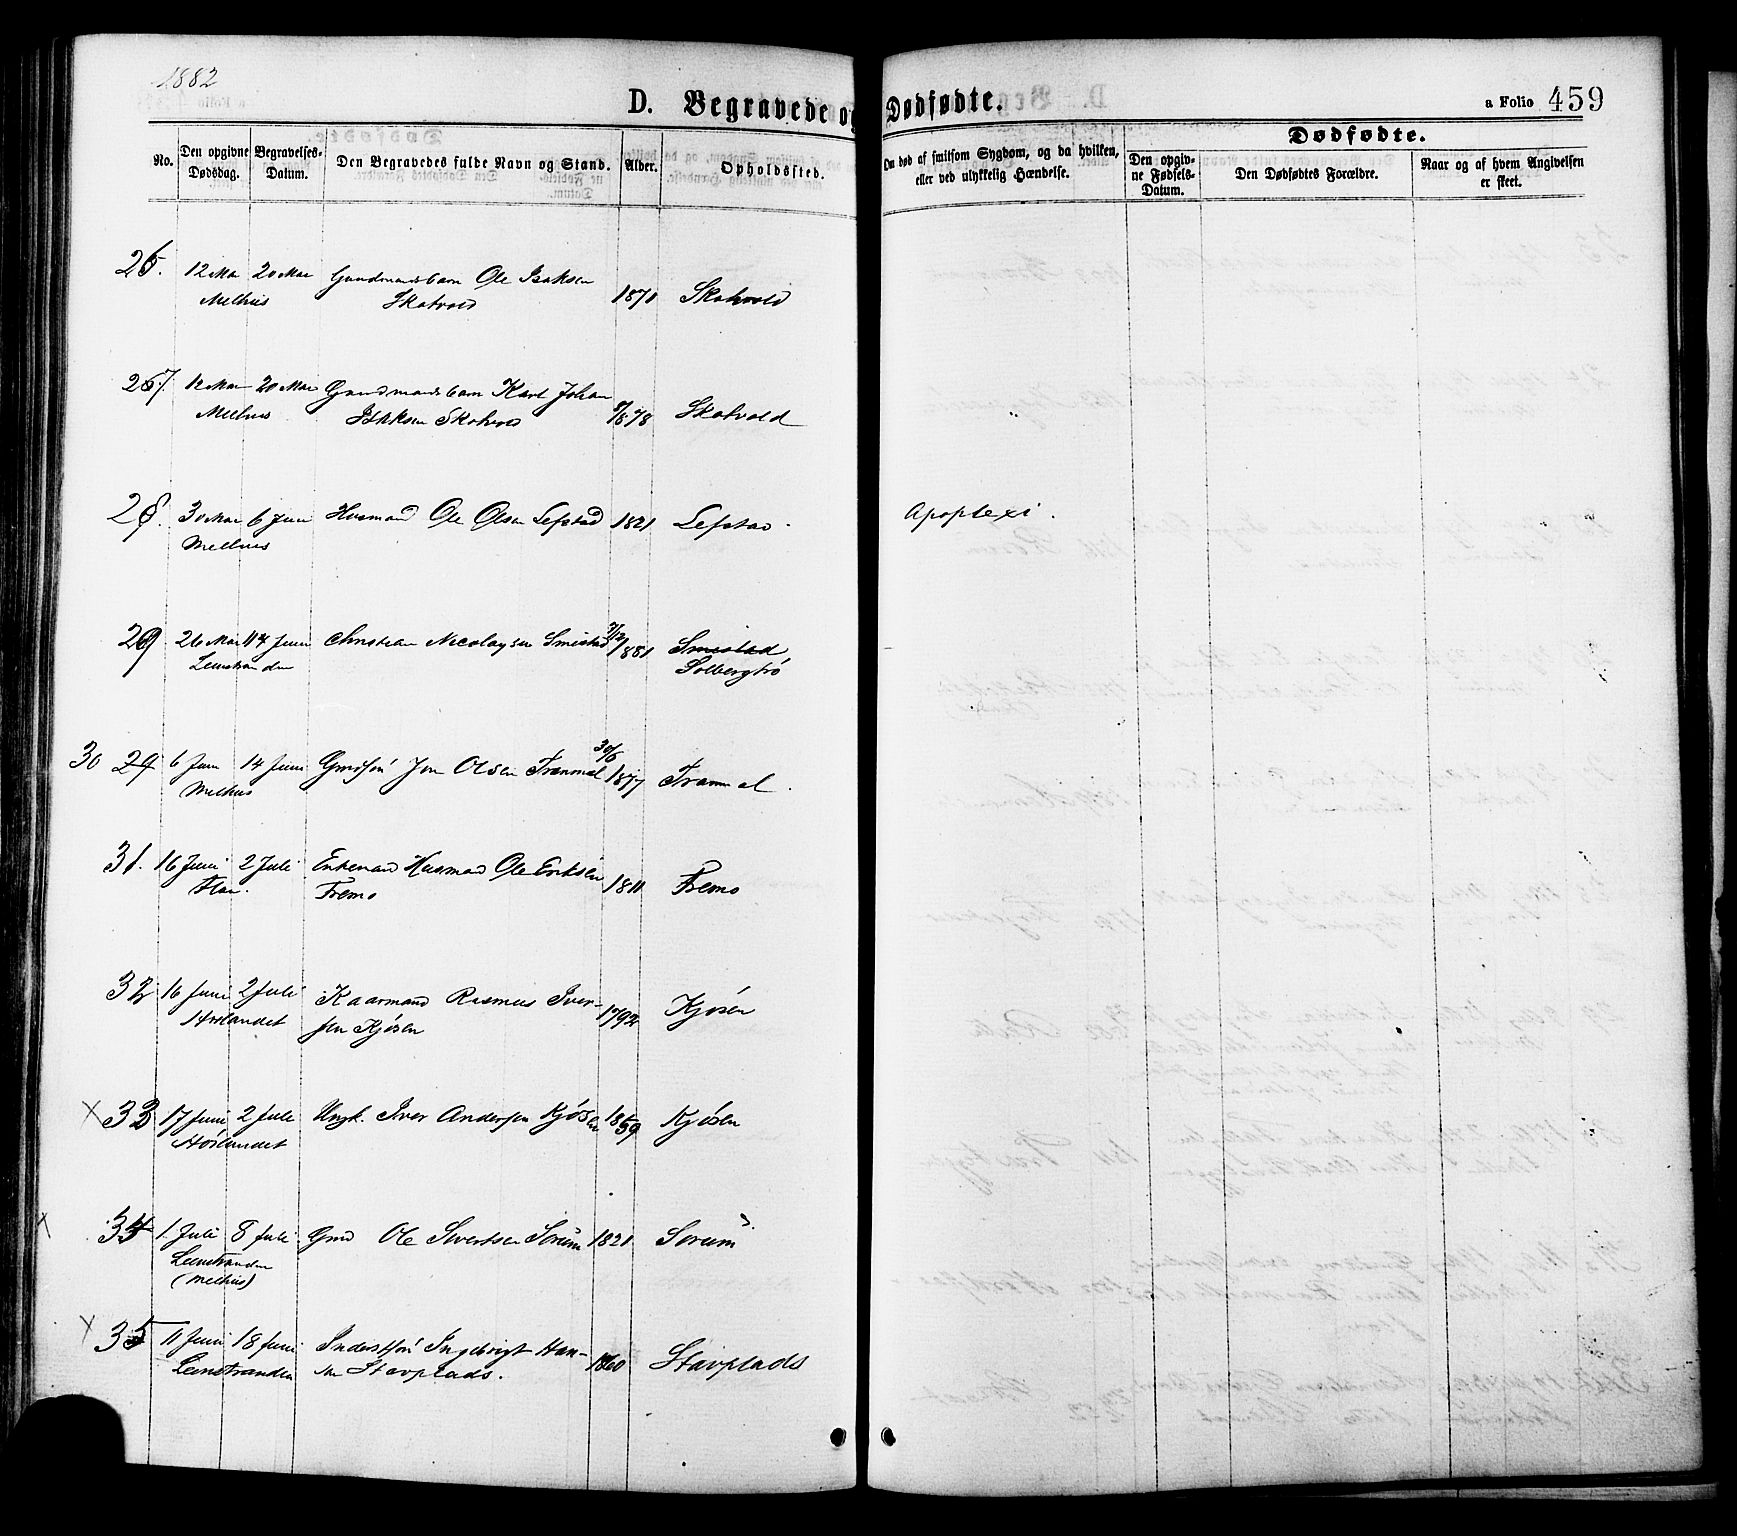 1882
D. Begravede og Dødfødte.
a Folio 459
No.
Den opgivne Dødsdag.
Begravelses-Datum.
Den Begravedes fulde Navn og Stand.
Alder.
Opholdssted.
Om død af smitsom Sygdom, og da hvilken, eller ved ulykkelig Hændelse.
Dødfødte.
Den opgivne Fødsels-Datum.
Den Dødfødtes Forældre.
Naar og af hvem Angivelsen er skeet.
26. 12 Mai 20 Mai Gaardmandsbarn Ole Isaksen 1871 Skotvold
Melhus Skotvold
27. 12 Mai 20 Mai Gaardmandsbarn Karl Johan Skotvold
Melhus Isaksen Skotvold
28. 30 Mai 6 Juni Husmand Ole Olsen Lefstad 1821 Lefstad. Apoplexi.
Melhus
29 26 Mai Juni Christian Nicolaysen Smistad 7/12 1881 Smistad
Leinstranden Solbergtrø
30 29 6 Juni 14 Juni Jon Olsen Tranmæl 1877 Tranmæl.
Melhus
31. 16 Juni 2 Juli Enkemand Husmand Ole Eriksen 1811 Fremo
Flaa. Fremo
32 16 Juni 2 Juli Kaarmand Rasmus Iver- 1792 Kjøsen
Hølandet sen Kjøsen
X 33 17 Juni 2 Juli Ungk. Iver Andersen Kjøsen 1859 Kjøsen
Hølandet
X 34 1. Juli 8 Juli Gmd Ole Sivertsen Sørum 1821 Sørum
Leinstranden
(Melhus)
X 35 11 Juni 18 Juni Inderst Ingebrigt Han- 1860 Stavplads
Leinstranden sen Stavplads.